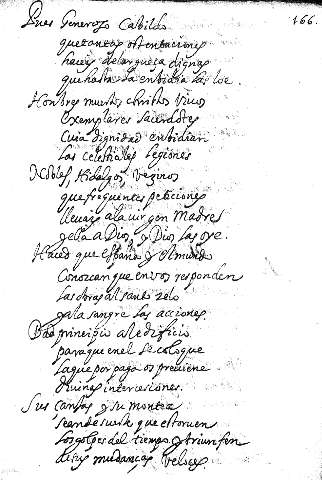 Pues Generozo Cabildo 166.
que tantas ostentaciones
haçeis de larguesa dignas
que hasta la enbidia las loe
Honbres muertos christos viuos
Exemplares Saçerdotes
Cuia dignidad enbidian
las celestiales legiones
Nobles, Hidalgos, Vezinos
que frequentes petiçiones
lleuais a la virgen Madre
y ella a Dios, y Dios las oye
Haced que España y el mundo
Conozcan que en vos responden
las obras al santo zelo
y a la sangre las acciones
Dad principio al edificio
para que en el se coloque
la que por pago os preuiene
diuinas interçesiones.
Sus cantos y su montea
sean de suerte que estoruen
los golpes del tiempo, y triunfen
de sus mudanças